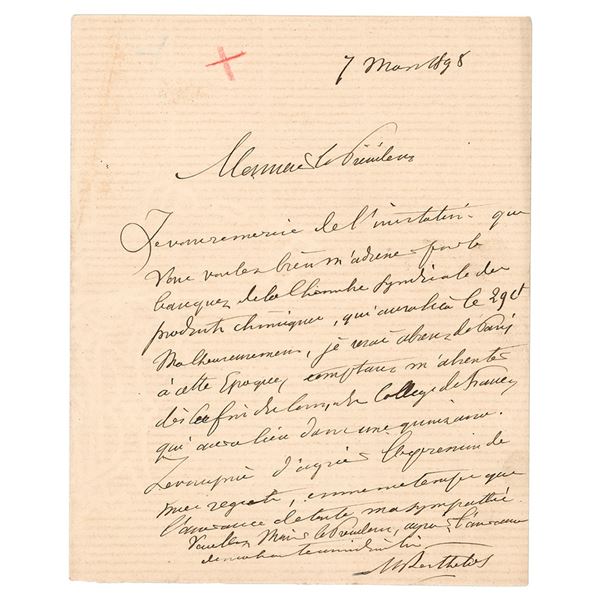 7 Mars 1898
Monsieur le Président
Je vous remercie de l'invitation que
Vous voulez bien m'adresser pour le
banquet de la Chambre syndicale des
produits chimiques, qui aura lieu le 29 ct
Malheureusement, je serai absent de Paris
à cette Epoque, comptant m'absenter
dès la fin du Cours du Collège de France,
qui aura lieu dans une quinzaine.
Je vous prie d'agréer l'expression de
mes regrets, en même temps que
l'assurance de toute ma sympathie.
Veuillez Monsr le Président, agréer l'assurance
de ma haute considération
M Berthelot